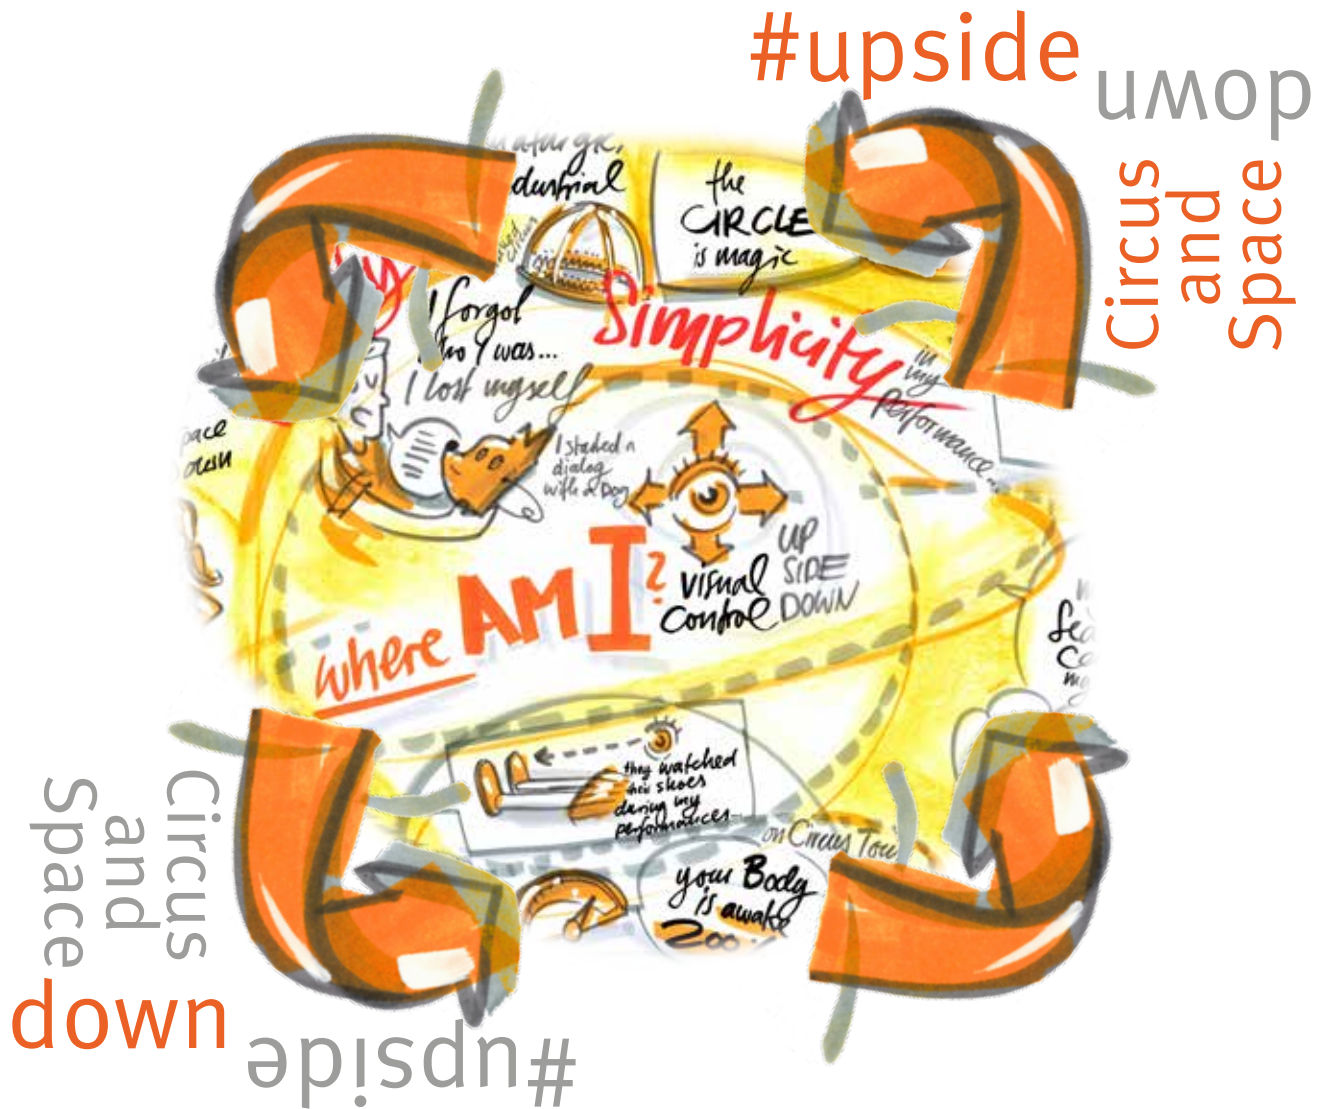 #upside
down
Circus
and
Space
industrial
the
CIRCLE
is magic
Simplicity
in
my
Performance...
I forgot
who I was...
I lost myself
I started a
dialog
with a Dog
UP
SIDE
DOWN
visual
control
where AM I?
they watched
their shoes
during my
performances...
on Circus Tour
your Body
is awake
200
Circus
and
Space
down
#upside